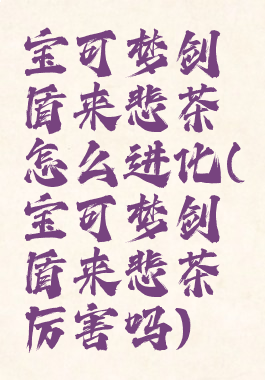 宝可梦剑
盾来悲茶
怎么进化(
宝可梦剑
盾来悲茶
厉害吗)